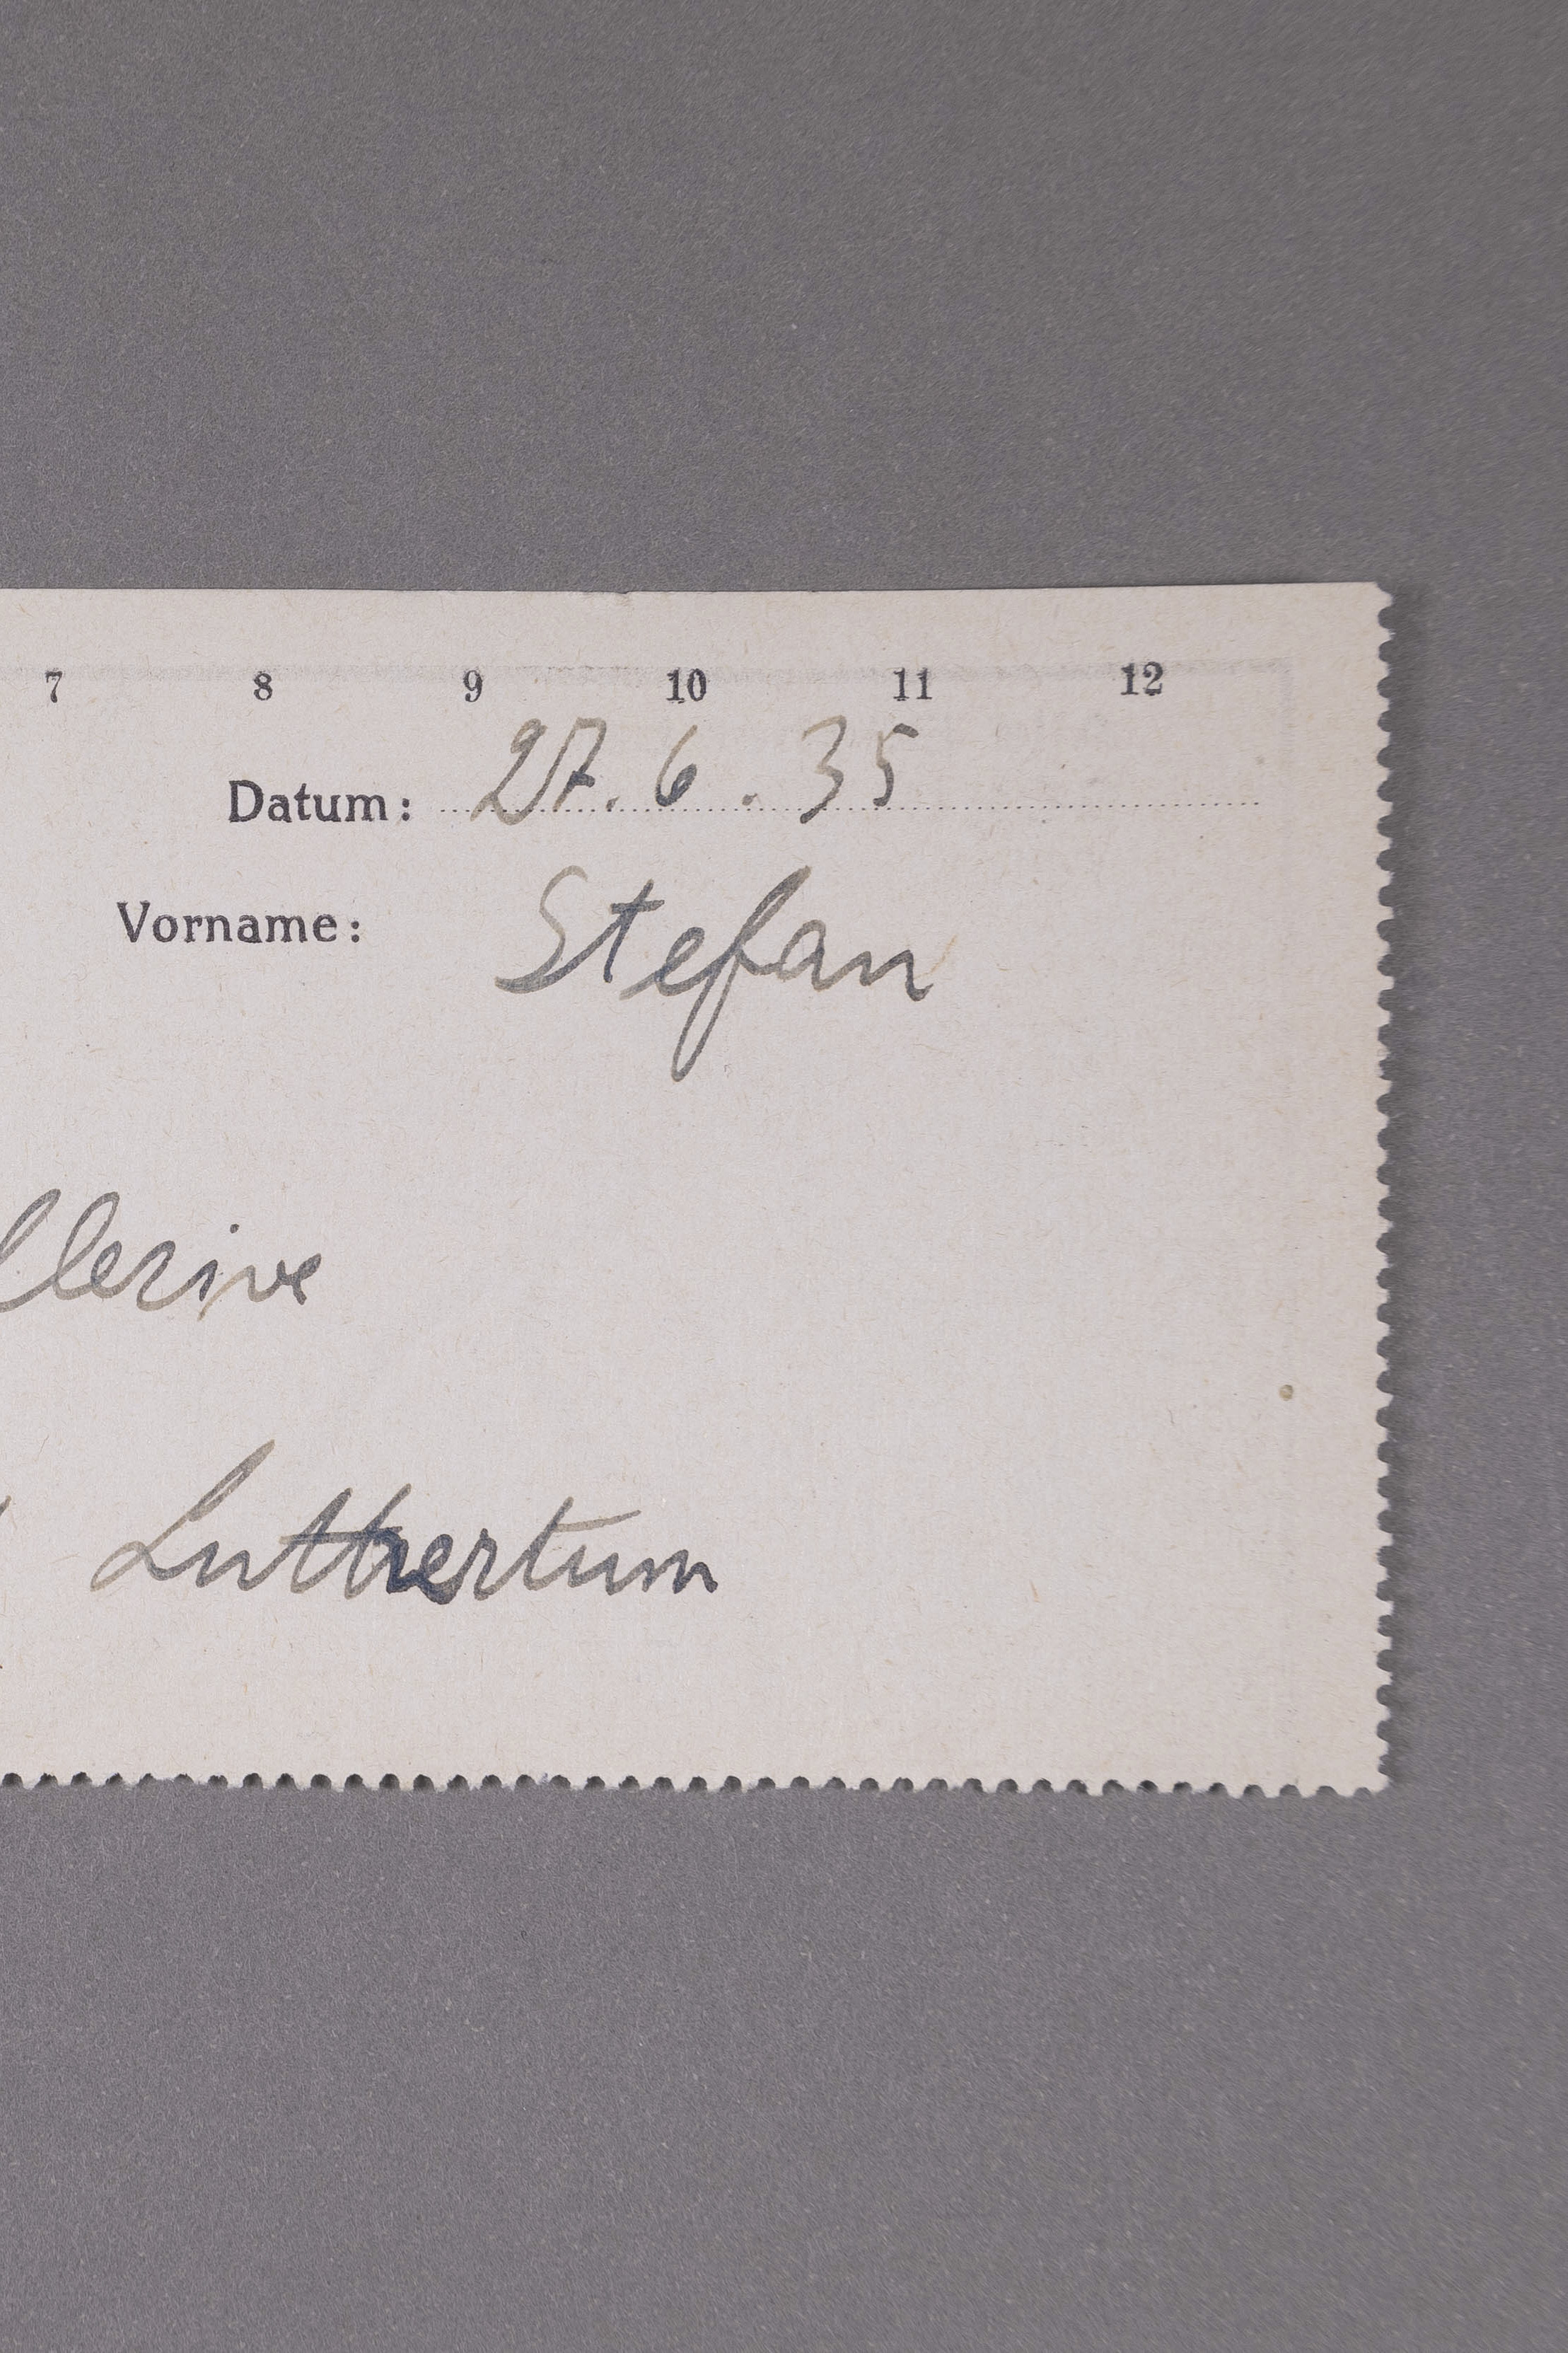 7 8 9 10 11 12
Datum: 27. 6. 35
Vorname: Stefan
llerive
Luthertum